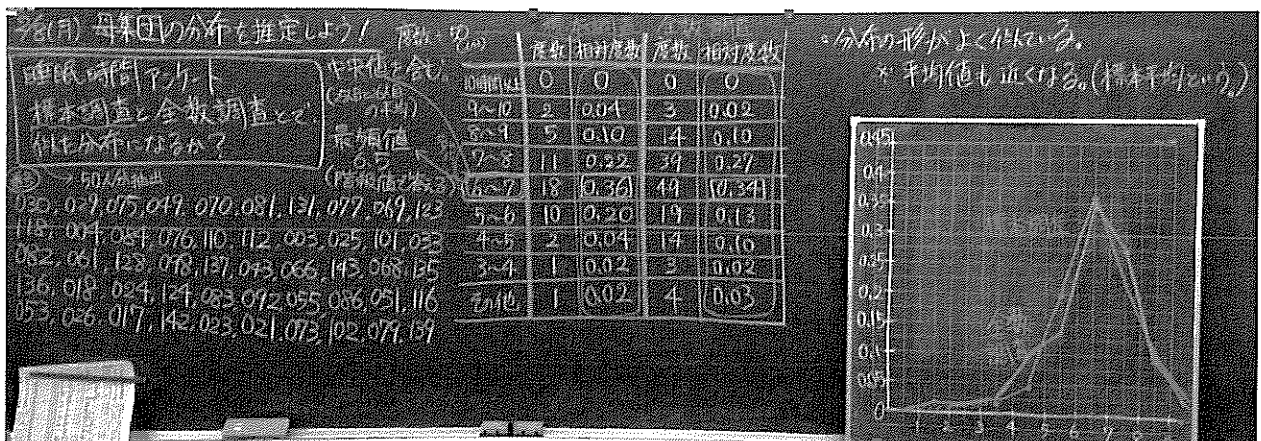 母集団の分布を推定しよう!
睡眠時間アンケート
標本調査と全数調査とで、
似た分布になるか?
→50人分抽出
中央値を含む。
最頻値
6.5
(階級値で答える)
030, 029, 075, 049, 070, 081, 131, 077, 069, 123
118, 004, 084, 076, 110, 112, 003, 025, 101, 033
082, 061, 128, 098, 137, 043, 066, 143, 068, 135
136, 018, 024, 124, 083, 092, 055, 086, 051, 116
053, 026, 017, 142, 023, 021, 073, 102, 079, 139
度数 相対度数 度数 相対度数
10時間以上 0 0 0 0
9~10 2 0.04 3 0.02
8~9 5 0.10 14 0.10
7~8 11 0.22 39 0.27
6~7 18 0.36 49 0.34
5~6 10 0.20 19 0.13
4~5 2 0.04 14 0.10
3~4 1 0.02 3 0.02
その他 1 0.02 4 0.03
分布の形がよく似ている。
※平均値も近くなる。(標本平均という。)
0.45
0.4
0.35
0.3
0.25
0.2
0.15
0.1
0.05
0
1 2 3 4 5 6 7 8